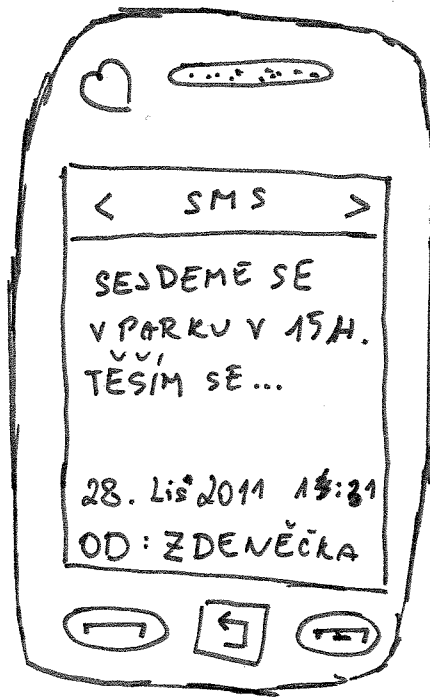 < SMS >
SEJDEME SE
V PARKU V 15H.
TĚŠÍM SE...
28. Lis 2011
OD: ZDENĚČKA